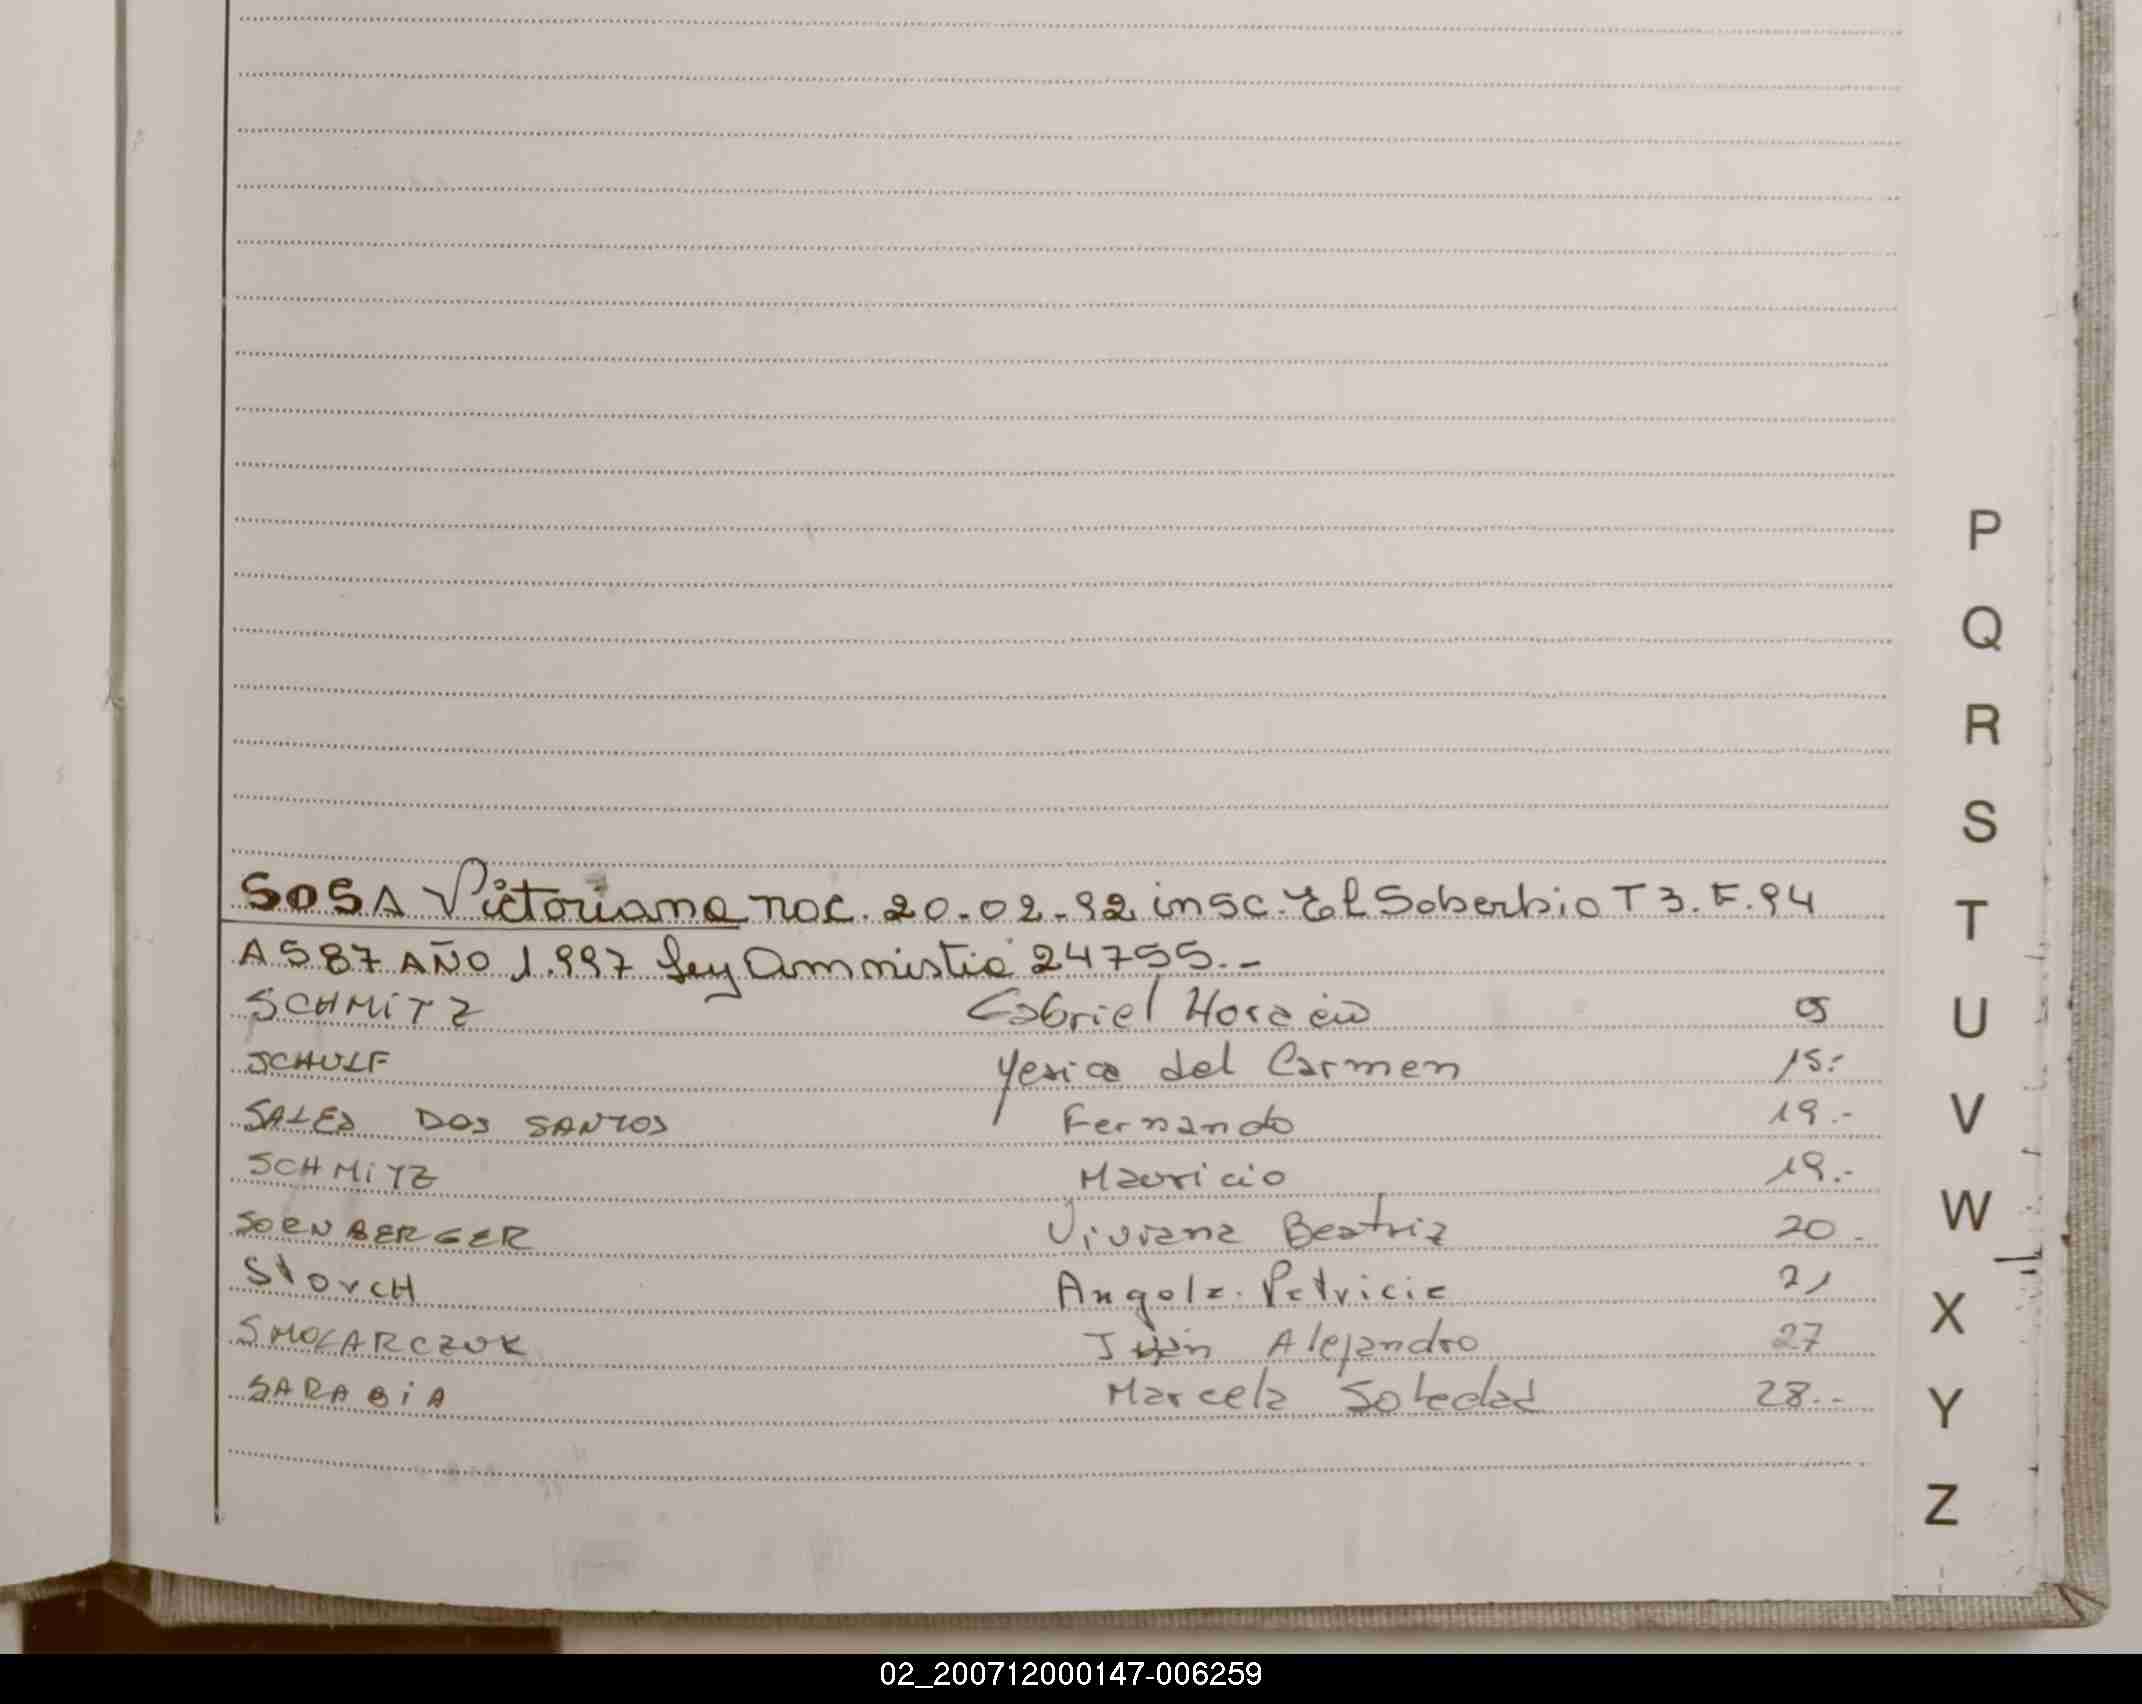 SOSA Victoriano nac. 20.02.92 insc. El Soberbio T 3. F. 94
A 587 AÑO 1.997 Ley Ammistia 24755.-
SCHMiTZ Gabriel Horacio 05
SCHULF Yesica del Carmen 15.-
SALES DOS SANTOS Fernando 19.-
SCHMiTZ Mauricio 19.-
SOENBERGER Viviana Beatriz 20.
STORCH Angola Patricia 21
SMOLARCZUK Juan Alejandro 27
SARABiA Marcela Soledad 28.-
P
Q
R
S
T
U
V
W
X
Y
Z
02_200712000147-006259